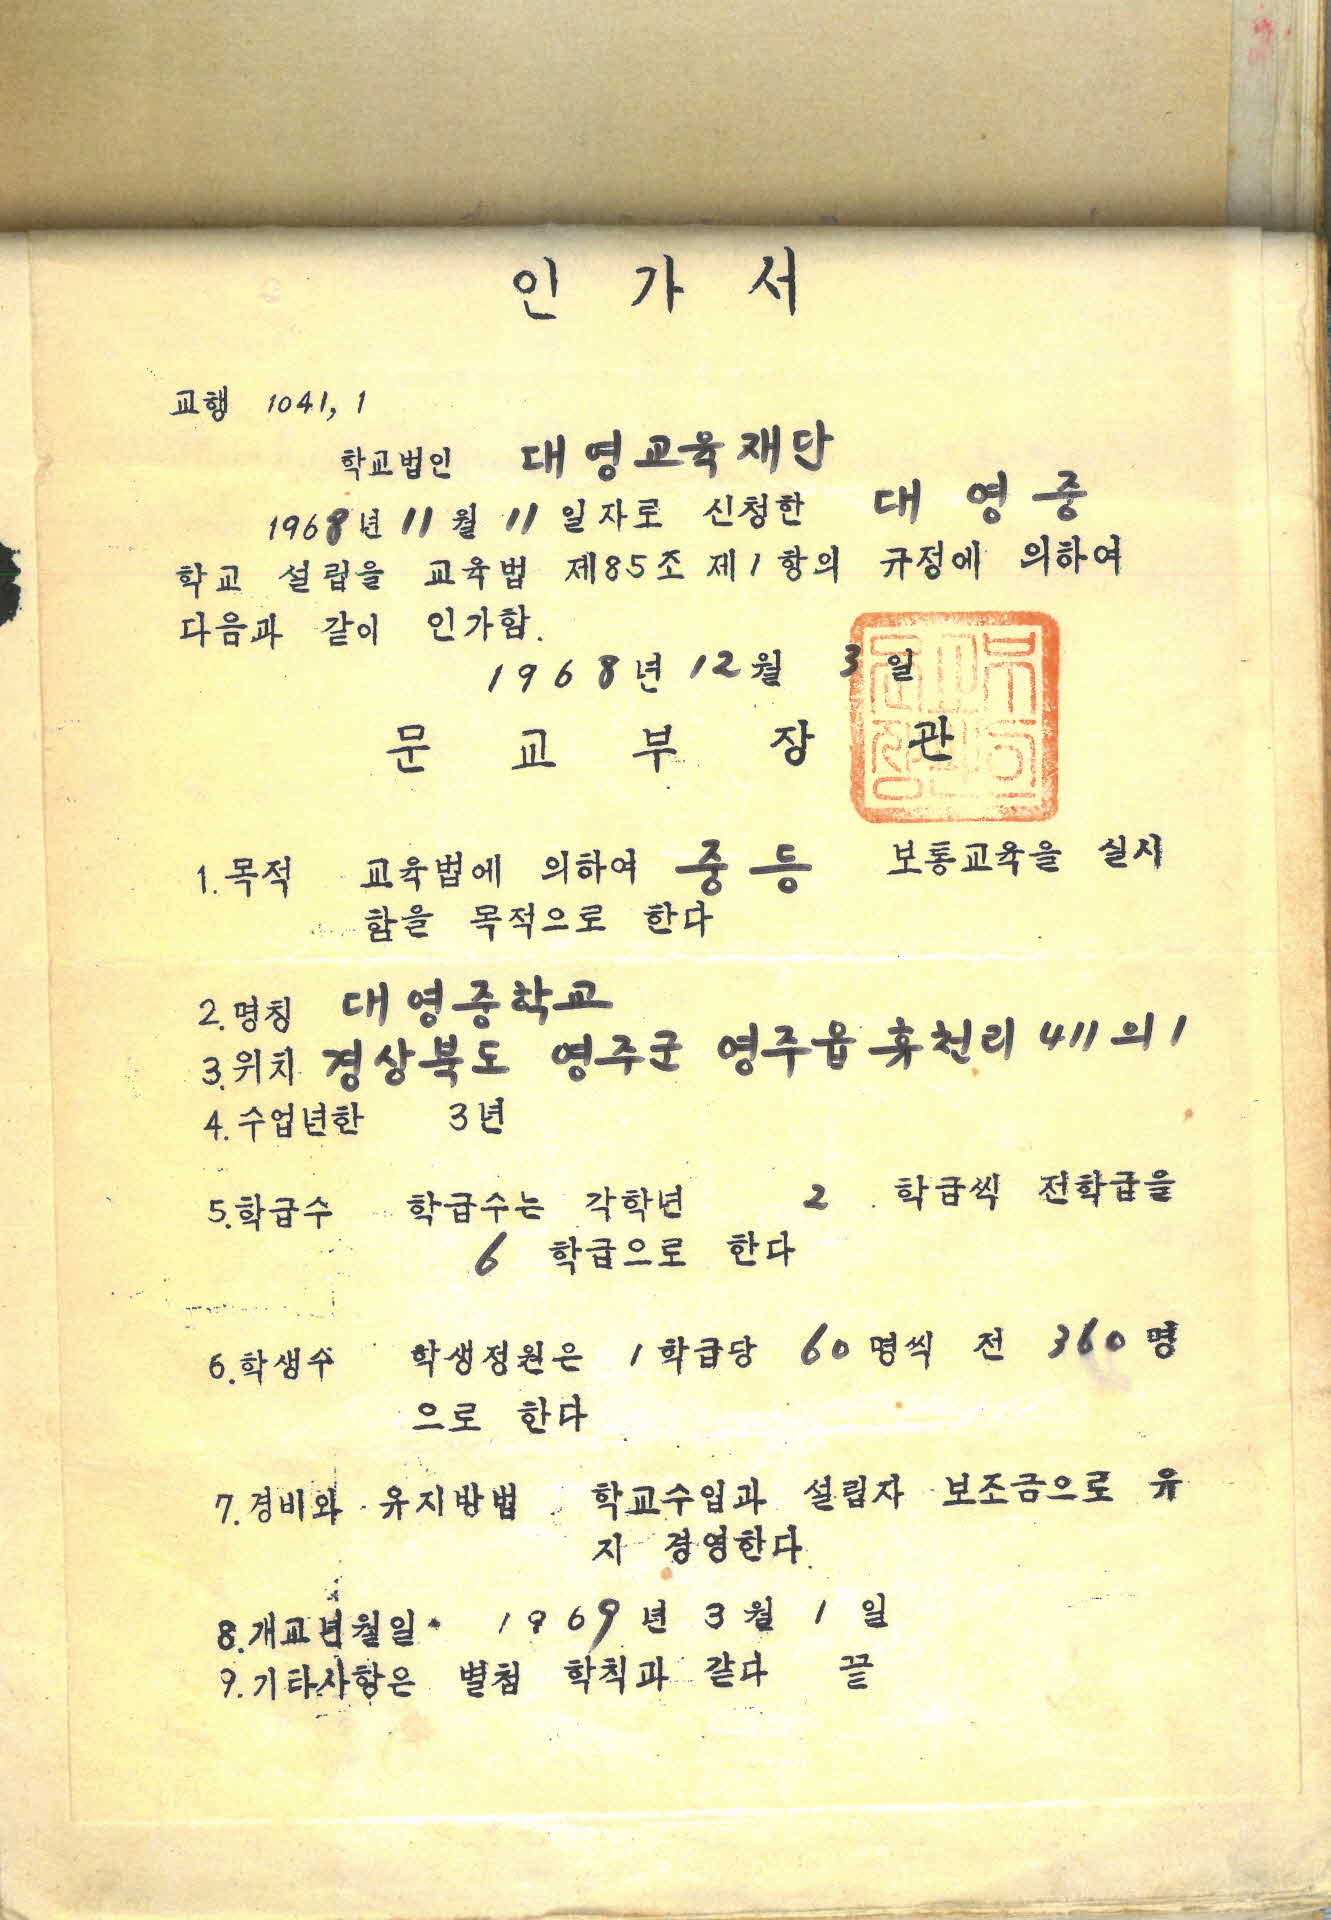 인 가 서
교행 1041, 1
학교법인 대영교육재단
1968년 11월 11일자로 신청한 대영중
학교 설립을 교육법 제85조 제1항의 규정에 의하여
다음과 같이 인가함.
1968년 12월 3일
문 교 부 장 관
1. 목적 교육법에 의하여 중등 보통교육을 실시
함을 목적으로 한다
2. 명칭 대영중학교
3. 위치 경상북도 영주군 영주읍 휴천리 411의 1
4. 수업년한 3년
5. 학급수 학급수는 각학년 2 학급씩 전학급을
6 학급으로 한다
6. 학생수 학생정원은 1학급당 60명씩 전 360명
으로 한다
7. 경비와 유지방법 학교수입과 설립자 보조금으로 유
지 경영한다.
8. 개교년월일 1969년 3월 1일
9. 기타사항은 별첨 학칙과 같다 끝